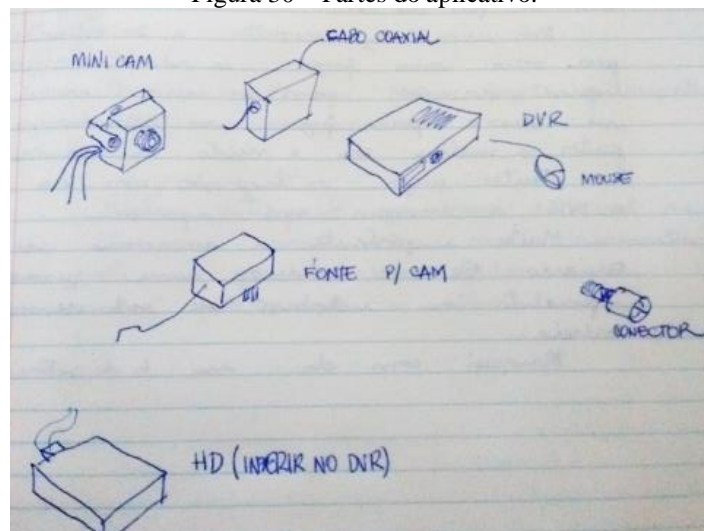 Figura 50 – Partes do aplicativo.
CABO COAXIAL
MINI CAM
DVR
MOUSE
FONTE P/ CAM
CONECTOR
HD (INSERIR NO DVR)